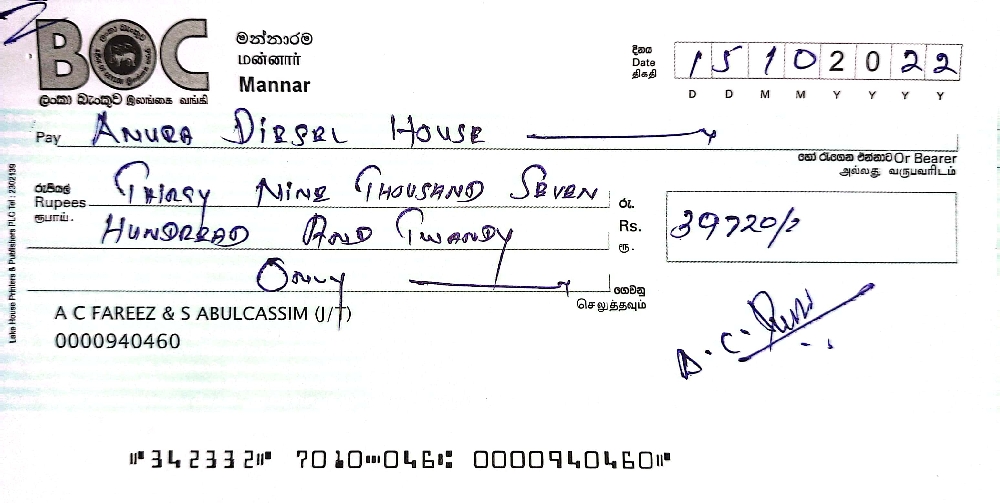 BOC
ලංකා බැංකුව இலங்கை வங்கி
මන්නාරම
மன்னார்
Mannar
දිනය
Date
திகதி
1 5 1 0 2 0 2 2
D D M M Y Y Y Y
Pay ANURA DIESEL HOUSE
හෝ රැගෙන එන්නාට Or Bearer
அல்லது வருபவரிடம்
රුපියල්
Rupees
ரூபாய்.
THIRSY NINE THOUSAND SEVEN
HUNDREAD AND TWANDY
ONLY
රු.
Rs.
ரூ.
39720/-
ගෙවනු
செலுத்தவும்
A C FAREEZ & S ABULCASSIM (J/T)
0000940460
A.C.
Lake House Printers & Publishers PLC Tel : 2302139
⑈342332⑈ 7010⑉046⑆ 0000940460⑈